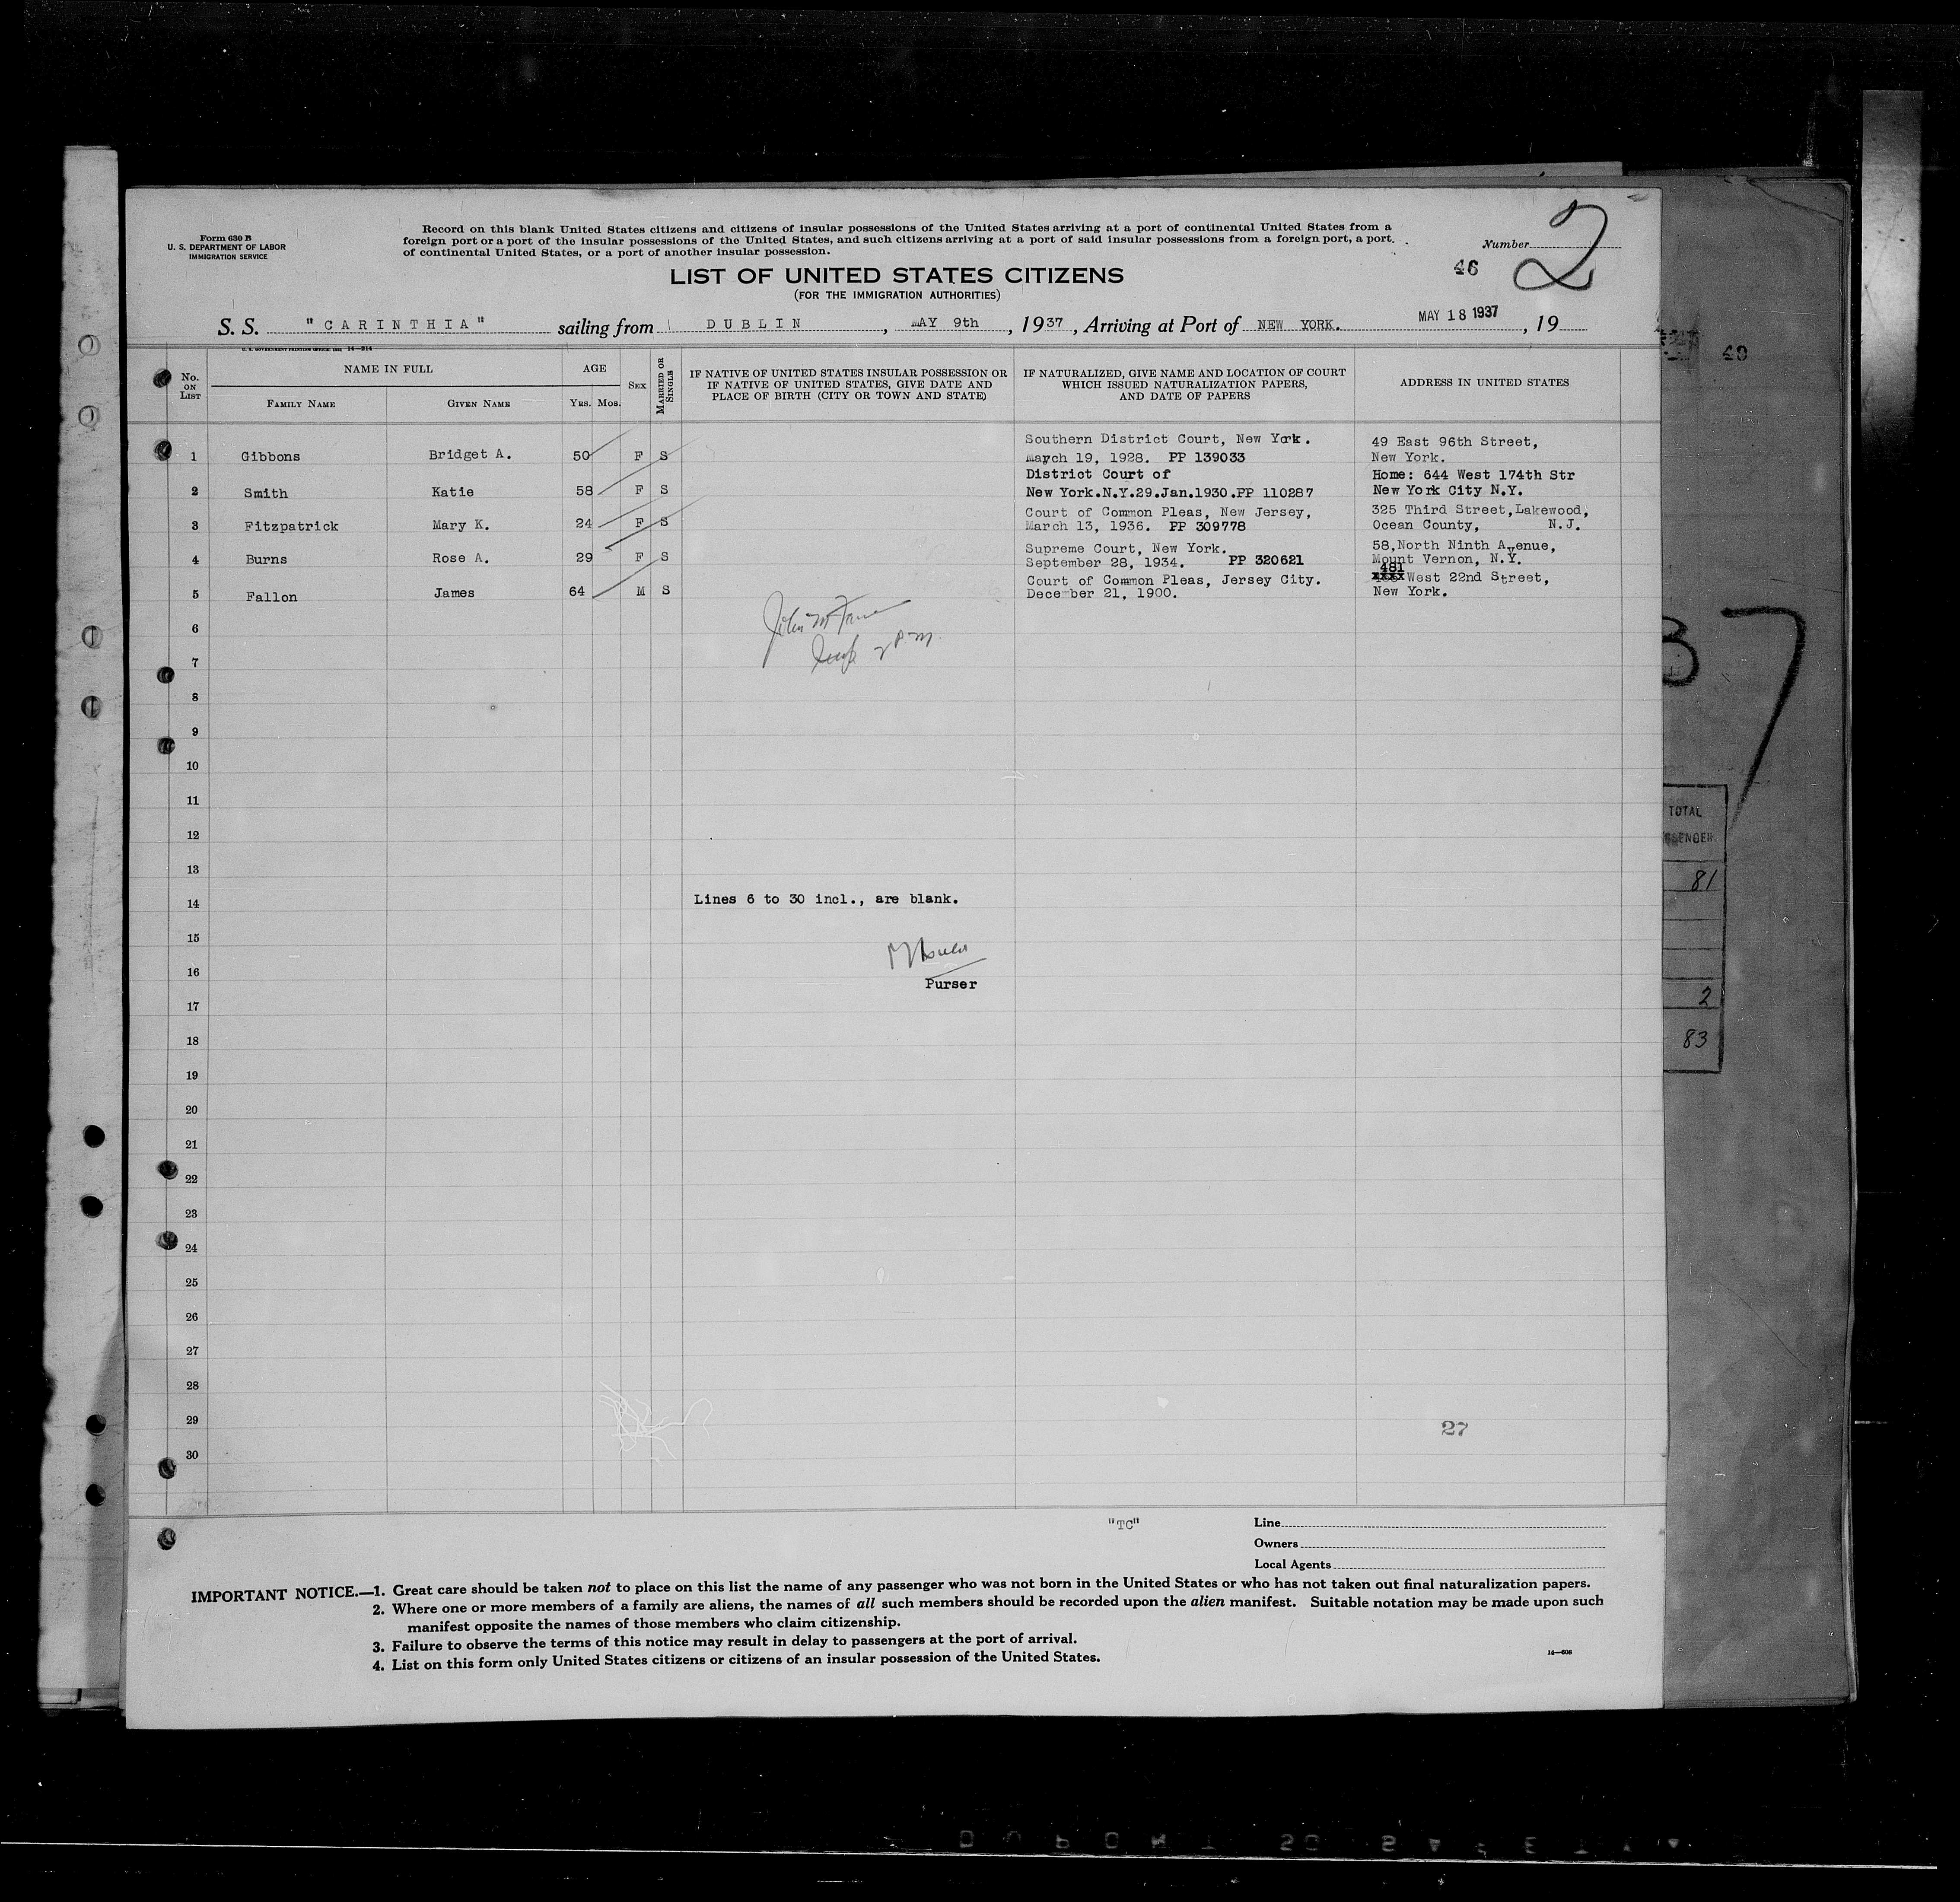 Form 630 B
U. S. DEPARTMENT OF LABOR
IMMIGRATION SERVICE
Record on this blank United States citizens and citizens of insular possessions of the United States arriving at a port of continental United States from a
foreign port or a port of the insular possessions of the United States, and such citizens arriving at a port of said insular possessions from a foreign port, a port
of continental United States, or a port of another insular possession.
Number 2
46
LIST OF UNITED STATES CITIZENS
(FOR THE IMMIGRATION AUTHORITIES)
S. S. "CARINTHIA" sailing from DUBLIN, mAY 9th, 1937, Arriving at Port of NEW YORK. MAY 18 1937, 19
49
No. ON LIST
NAME IN FULL
FAMILY NAME
GIVEN NAME
AGE
YRS. MOS.
SEX
MARRIED OR SINGLE
IF NATIVE OF UNITED STATES INSULAR POSSESSION OR
IF NATIVE OF UNITED STATES, GIVE DATE AND
PLACE OF BIRTH (CITY OR TOWN AND STATE)
IF NATURALIZED, GIVE NAME AND LOCATION OF COURT
WHICH ISSUED NATURALIZATION PAPERS,
AND DATE OF PAPERS
ADDRESS IN UNITED STATES
Southern District Court, New York. 49 East 96th Street,
1 Gibbons Bridget A. 50 F S maych 19, 1928. PP 139033 New York.
District Court of Home: 644 West 174th Str
2 Smith Katie 58 F S New York.N.Y.29.Jan.1930.PP 110287 New York City N.Y.
Court of Common Pleas, New Jersey, 325 Third Street,Lakewood,
3 Fitzpatrick Mary K. 24 F S March 13, 1936. PP 309778 Ocean County, N.J.
Supreme Court, New York. 58,North Ninth Avenue,
4 Burns Rose A. 29 F S September 28, 1934. PP 320621 Mount Vernon, N.Y.
Court of Common Pleas, Jersey City. 481 West 22nd Street,
5 Fallon James 64 M S December 21, 1900. New York.
6
7
8
9
10
11
12
13
14 Lines 6 to 30 incl., are blank.
15
16
Purser
17
18
19
20
21
22
23
24
25
26
27
28
29 27
30
TOTAL
81
2
83
"TC"
Line
Owners
Local Agents
IMPORTANT NOTICE.—1. Great care should be taken not to place on this list the name of any passenger who was not born in the United States or who has not taken out final naturalization papers.
2. Where one or more members of a family are aliens, the names of all such members should be recorded upon the alien manifest. Suitable notation may be made upon such
manifest opposite the names of those members who claim citizenship.
3. Failure to observe the terms of this notice may result in delay to passengers at the port of arrival.
4. List on this form only United States citizens or citizens of an insular possession of the United States.